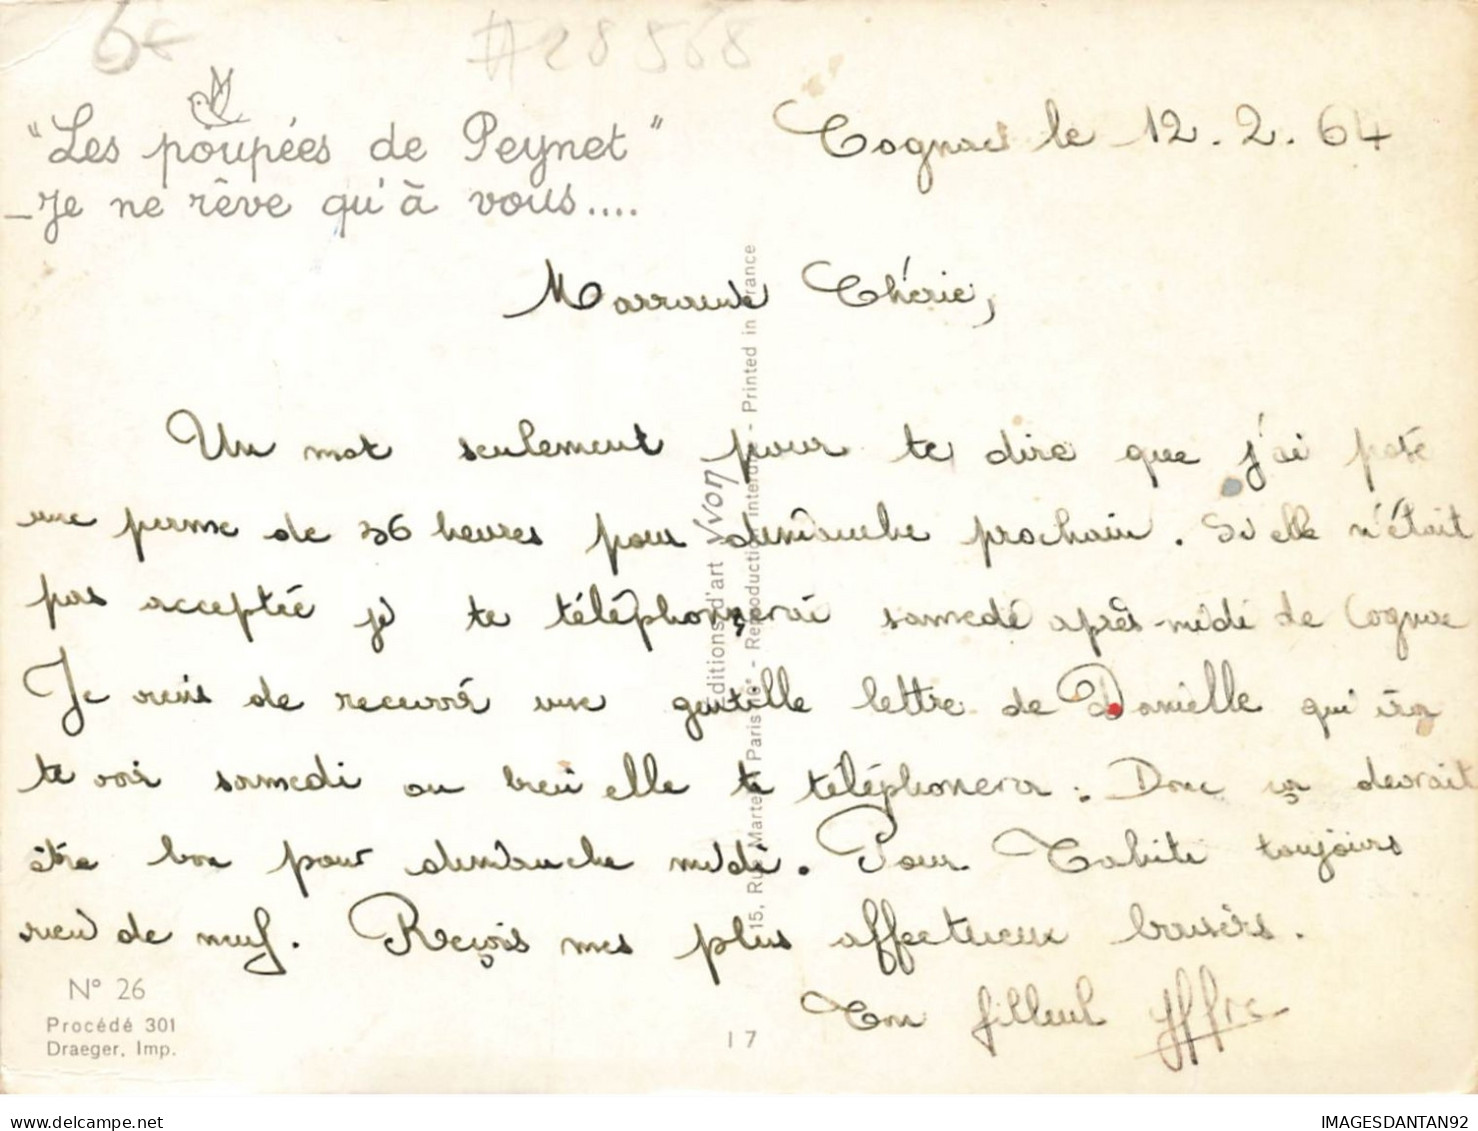 6€
#28568
"Les poupées de Peynet"
_ Je ne rêve qu'à vous....
Cognac le 12.2.64
Marraine Chérie,
Un mot seulement pour te dire que j'ai posé
une perme de 36 heures pour dimanche prochain. Si elle n'était
pas acceptée je te téléphonerai samedi après-midi de Cognac
Je viens de recevoir une gentille lettre de Danielle qui ira
te voir samedi ou bien elle te téléphonera. Donc ça devrait
être bon pour dimanche midi. Pour Tahiti toujours
rien de neuf. Reçois mes plus affectueux baisers.
Ton filleul
Editions d'art Yvon
15, Rue Martel Paris 10e - Reproduction interdite - Printed in France
N° 26
Procédé 301
Draeger, Imp.
17
delcampe.net
IMAGESDANTAN92